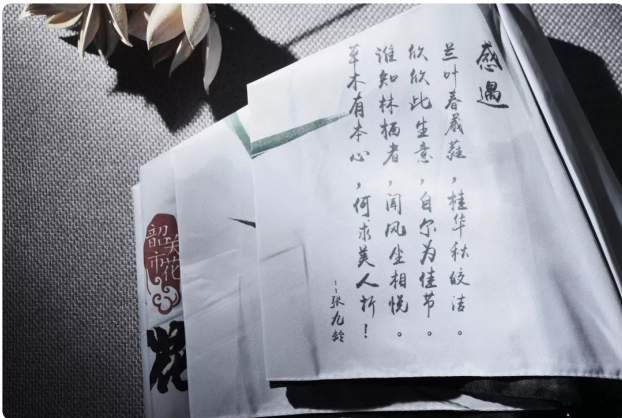 感遇
兰叶春葳蕤，桂华秋皎洁。
欣欣此生意，自尔为佳节。
谁知林栖者，闻风坐相悦。
草木有本心，何求美人折！
--张九龄
韶关
市花
花